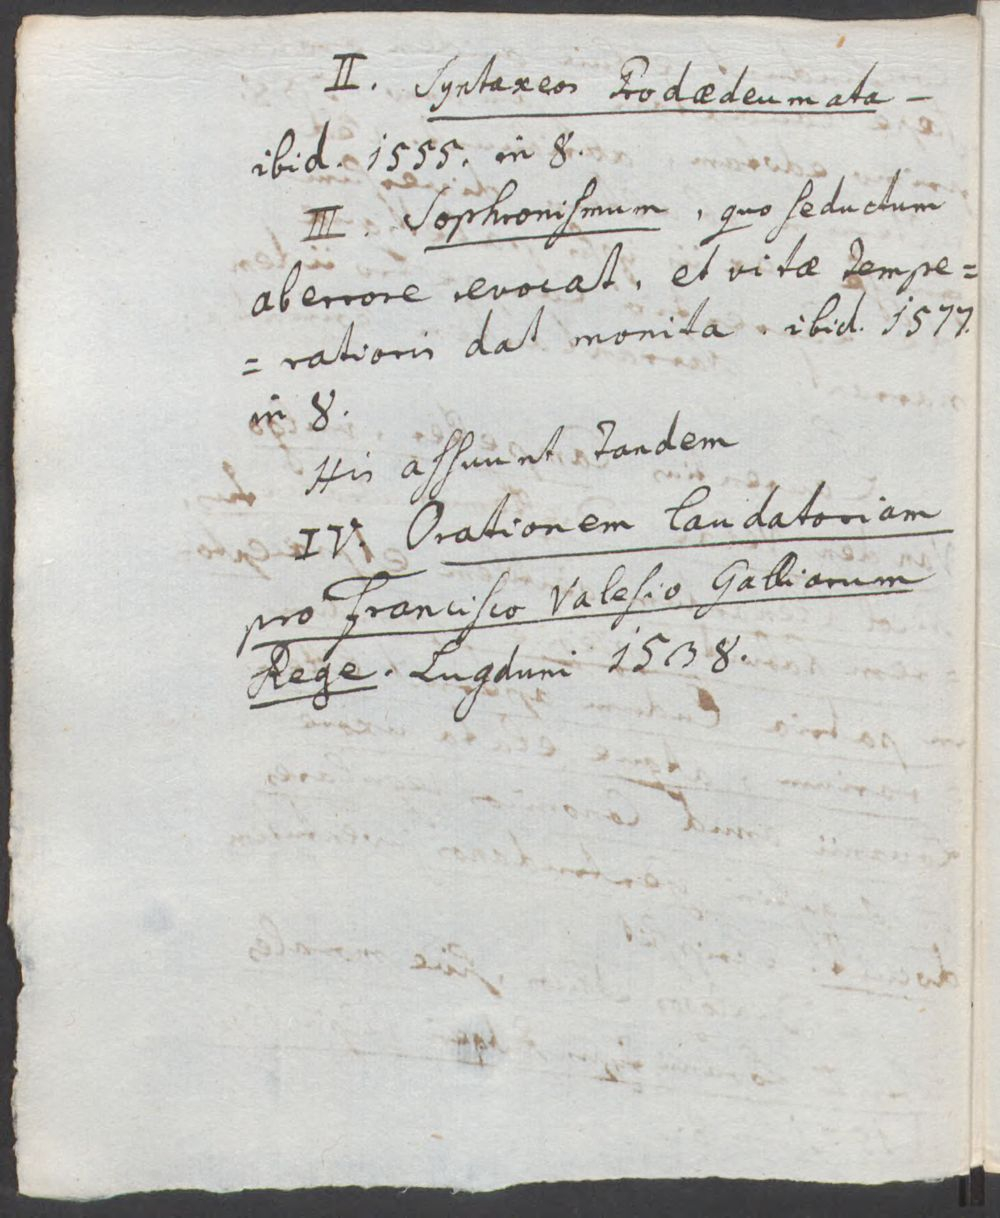 II. Syntaxeos Prodædeumata -
ibid. 1555. in 8.
III. Sophronismum, quo seductum
ab errore revocat, et vitæ tempe=
= rationis dat monita. ibid. 1577.
in 8.
His assuunt tandem
IV. Orationem laudatoriam
pro Francisco Valesio Galliarum
Rege. Lugduni 1538.